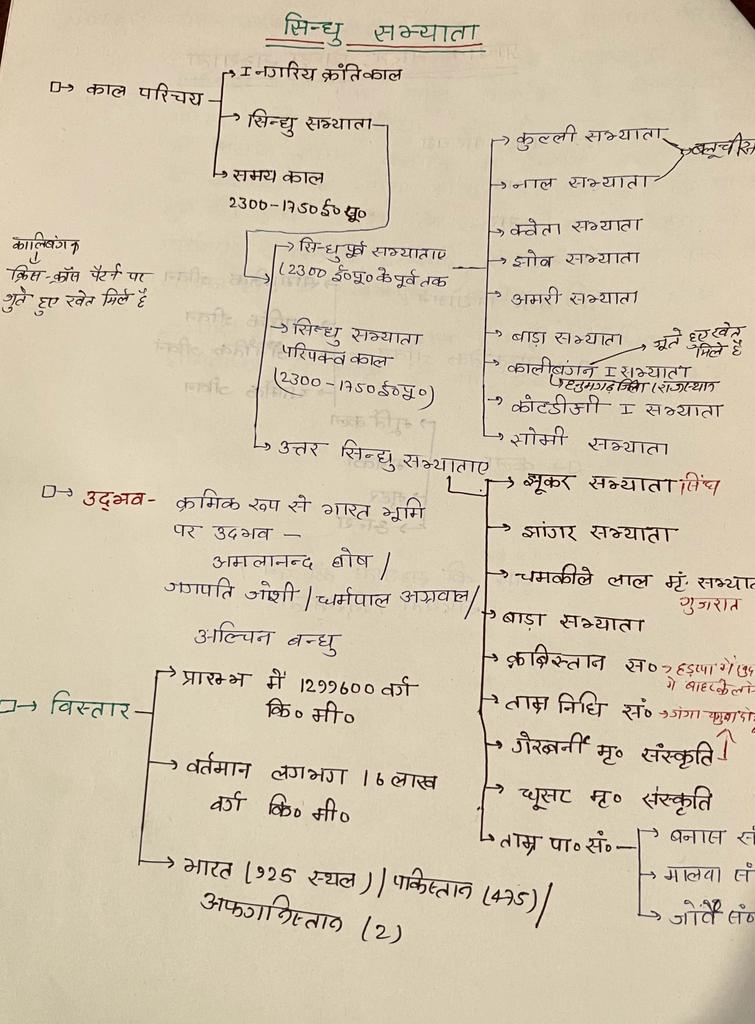 सिन्धु सभ्यता
□→ काल परिचय
→ I नगरिय क्रंतिकाल
→ सिन्धु सभ्यता
→ समय काल
2300-1750 ई० पू०
→ कुल्ली सभ्यता
→ नाल सभ्यता
→ क्वेता सभ्यता
→ झोब सभ्यता
→ अमरी सभ्यता
→ बाड़ा सभ्यता
→ कालीबंगन I सभ्यता
→ जूते हुए खेत
मिले है
हनुमगढ़ जिला (राजस्थान
→ कोटडीजी I सभ्यता
→ सोमी सभ्यता
कालिबंगन
क्रिस-क्रॉस पैटर्न पर
जुते हुए खेत मिले है
→ सिन्धु पूर्व सभ्यताए
(2300 ई०पू० के पूर्व तक
→ सिन्धु सभ्यता
परिपक्व काल
(2300-1750 ई०पू०)
→ उत्तर सिन्धु सभ्यताए
→ झूकर सभ्यता सिंध
→ झांगर सभ्यता
→ चमकीले लाल मृं.
गुजरात
→ बाड़ा सभ्यता
→ क्रब्रिस्तान स० → हड़प्पा में
→ ताम्र निधि सं०
→ गेरुवर्नी मृ० संस्कृति
→ धूसट मृ० संस्कृति
→ ताम्र पा० सं०
→ बनास
→ मालवा सं
→ जोर्वे सं०
□→ उद्भव- क्रमिक रूप से भारत भूमि
पर उदभव -
अमलानन्द घोष /
जगपति जोशी / धर्मपाल अग्रवाल /
अल्चिन बन्धु
□→ विस्तार
→ प्रारम्भ में 1299600 वर्ग
कि० मी०
→ वर्तमान लगभग 16 लाख
वर्ग कि० मी०
→ भारत (925 स्थल) / पाकिस्तान (475) /
अफगानिस्तान (2)